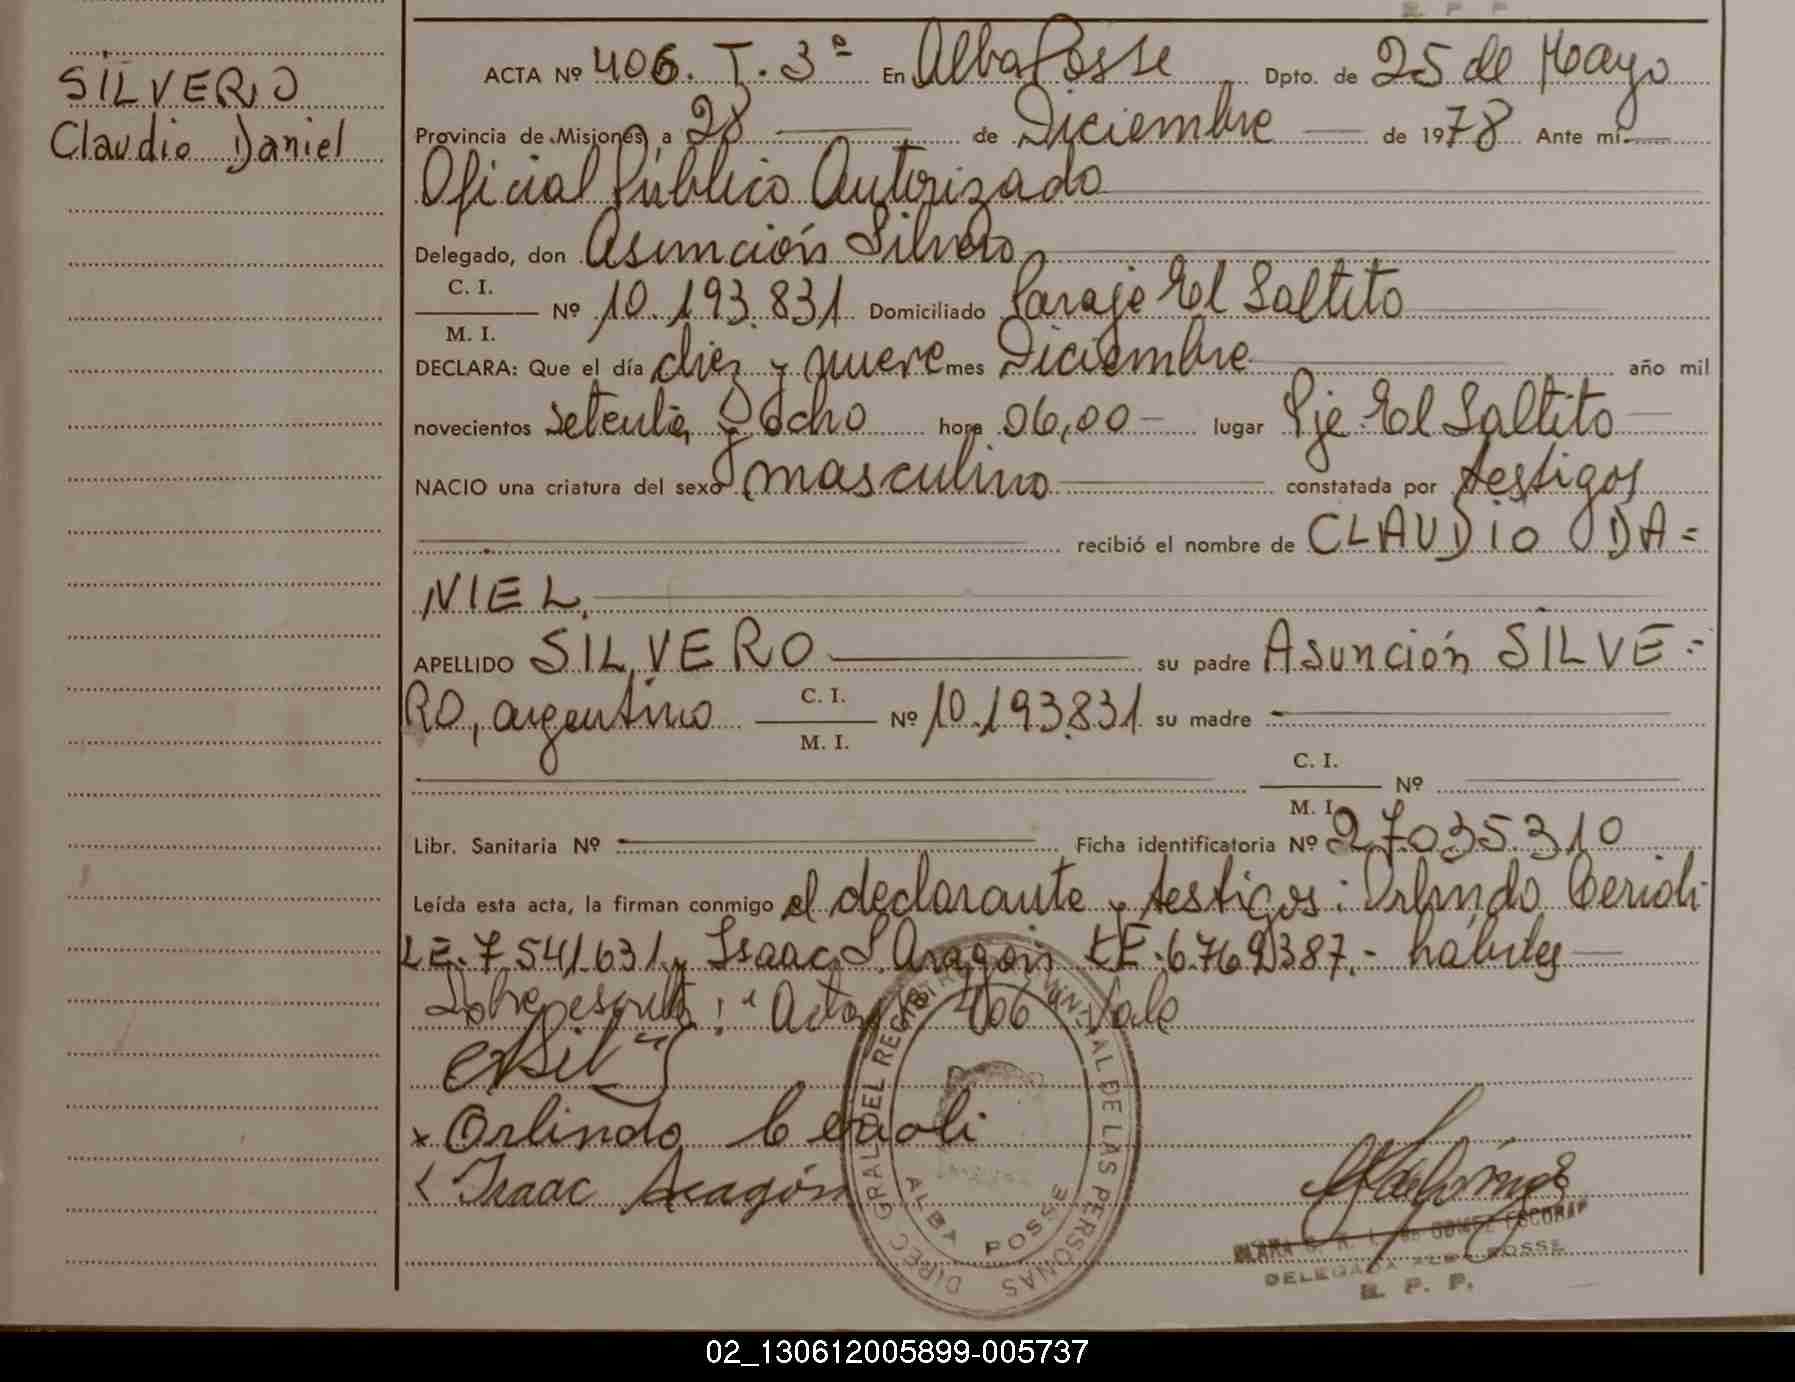 SILVERO
Claudio Daniel
ACTA Nº 406. T. 3º En Alba Posse Dpto. de 25 de Mayo
Provincia de Misiones, a 28 de Diciembre de 1978 Ante mí
Oficial Público Autorizado
Delegado, don Asunción Silvero
C. I.
Nº 10.193.831 Domiciliado Paraje El Saltito
M. I.
DECLARA: Que el día diez y nueve mes Diciembre año mil
novecientos setenta y ocho hora 06,00 lugar Pje. El Saltito
NACIO una criatura del sexo masculino constatada por testigos
recibió el nombre de CLAUDIO DA=
NIEL.
APELLIDO SILVERO su padre Asunción SILVE=
RO, argentino C. I. Nº 10.193.831 su madre
M. I.
C. I.
Nº
M. I.
Libr. Sanitaria Nº Ficha identificatoria Nº 27035310
Leída esta acta, la firman conmigo el declarante y testigos: Orlindo Cerioli
LE. 7.541.631 y Isaac S. Aragón LE. 6.769.387.- hábiles
Sobreescrito: "Acta 406" Vale
Orlindo Cerioli
Isaac Aragón
DIREC. GRAL. DEL REGISTRO PROVINCIAL DE LAS PERSONAS
ALBA POSSE
GOMEZ ESCOBAR
DELEGADA ALBA POSSE
R. P. P.
02_130612005899-005737